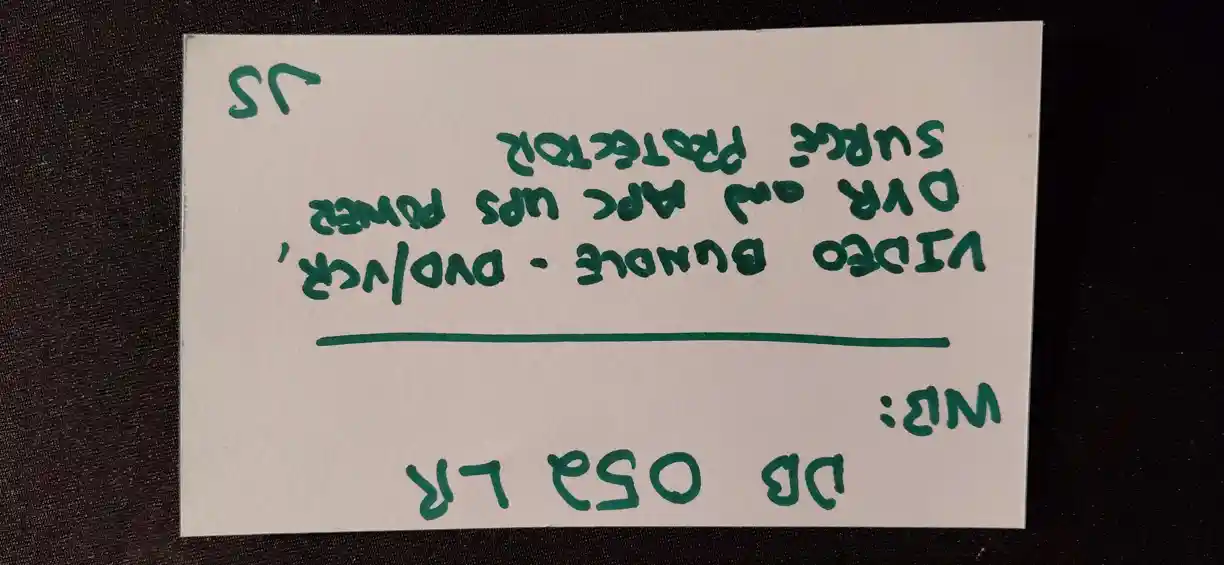 DB 052 LR
WB:
VIDEO BUNDLE - DVD/VCR,
DVR and APC UPS POWER
SURGE PROTECTOR
JS